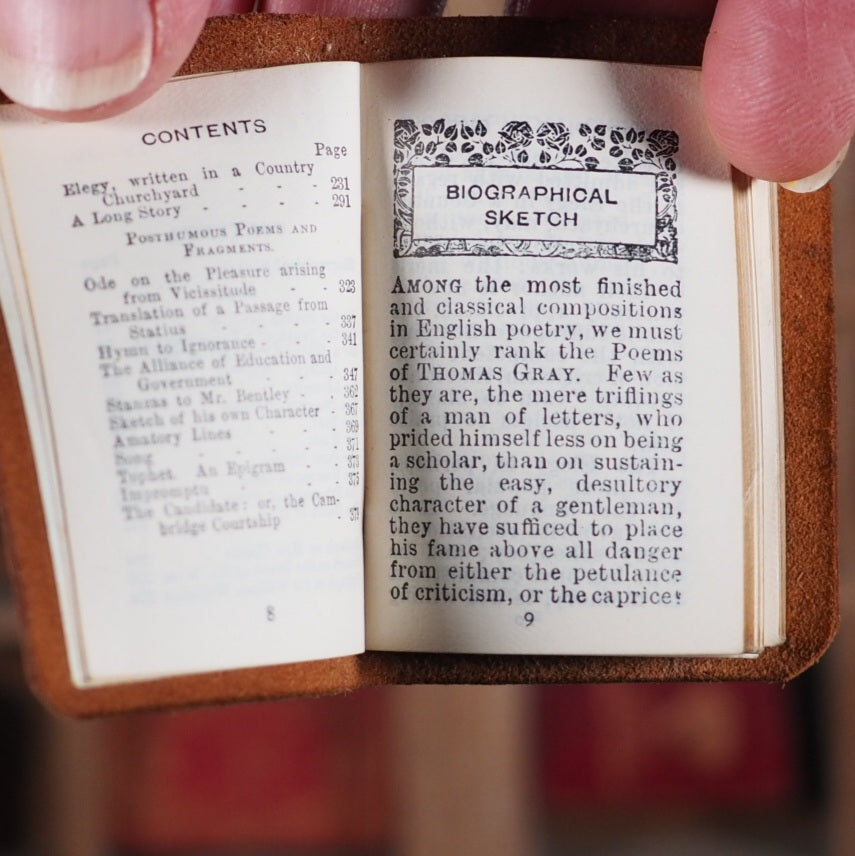 CONTENTS
Page
Elegy, written in a Country
Churchyard - - - 231
A Long Story - - - - 291
POSTHUMOUS POEMS AND
FRAGMENTS.
Ode on the Pleasure arising
from Vicissitude - - 323
Translation of a Passage from
Statius - - - - 337
Hymn to Ignorance - - - 341
The Alliance of Education and
Government - - - 347
Stanzas to Mr. Bentley - - 362
Sketch of his own Character - 367
Amatory Lines - - - 369
Song - - - - - 371
Tophet. An Epigram - - 373
Impromptu - - - - 375
The Candidate: or, the Cam-
bridge Courtship -
8
BIOGRAPHICAL
SKETCH
AMONG the most finished
and classical compositions
in English poetry, we must
certainly rank the Poems
of THOMAS GRAY. Few as
they are, the mere triflings
of a man of letters, who
prided himself less on being
a scholar, than on sustain-
ing the easy, desultory
character of a gentleman,
they have sufficed to place
his fame above all danger
from either the petulance
of criticism, or the caprices
9